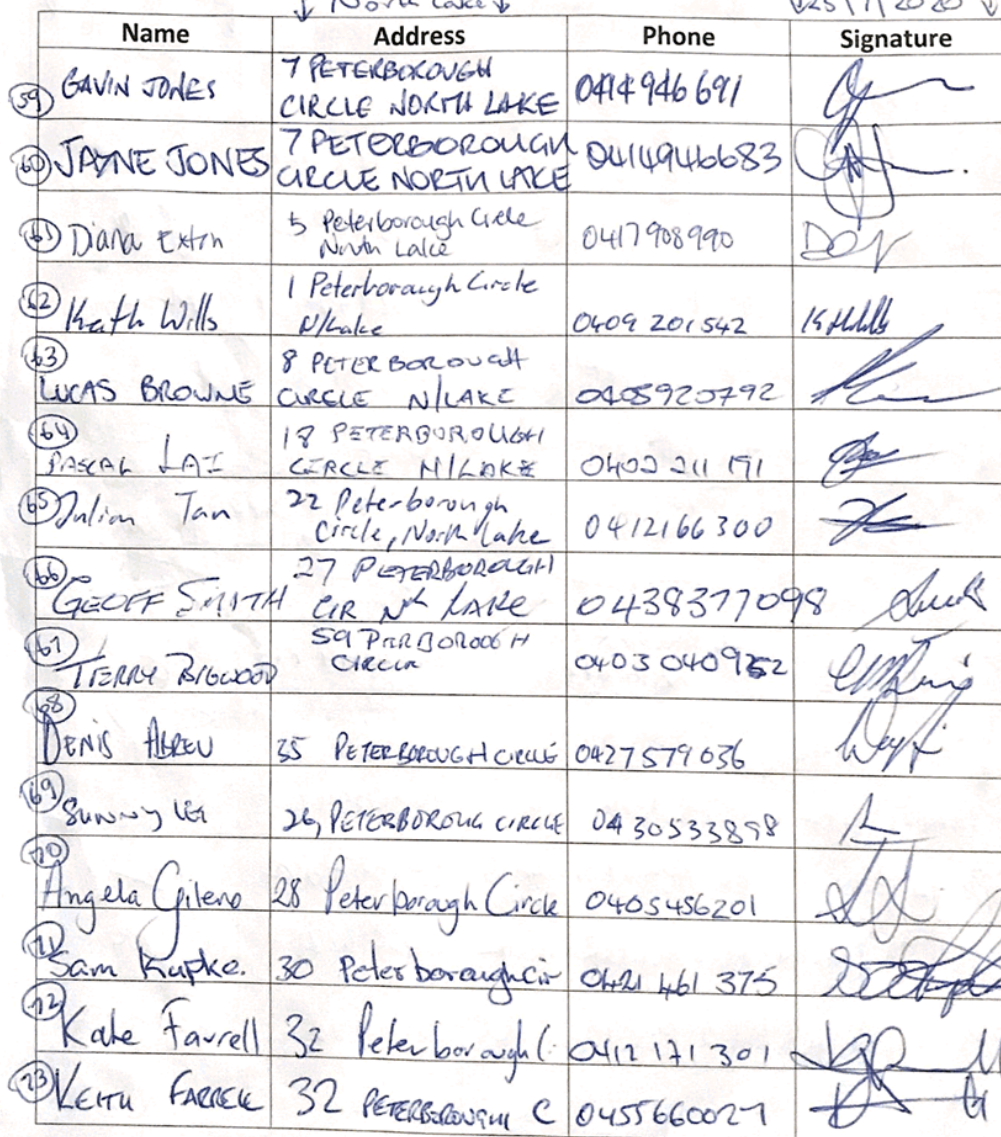 ↓ North Lake ↓ ↓25/7/2020 ↓
Name Address Phone Signature
59 GAVIN JONES 7 PETERBOROUGH
CIRCLE NORTH LAKE 0414 946 691
60 JAYNE JONES 7 PETERBOROUGH
CIRCLE NORTH LAKE 0414946683
61 Diana 5 Peterborough Circle
North Lake 0417908990
62 Kath Wills 1 Peterborough Circle
N/Lake 0409 201542
63 LUCAS BROWNE 8 PETERBOROUGH
CIRCLE N/LAKE 0405920792
64 PASCAL LAI 18 PETERBOROUGH
CIRCLE N/LAKE 0402 211 191
65 Julian Tan 22 Peterborough
Circle, North Lake 0412166300
66 GEOFF SMITH 27 PETERBOROUGH
CIR Nth LAKE 0438377098
67 TERRY BIGWOOD 59 PTERBOROOGH
CIRCLE 0403040952
68 DENIS ABREU 35 PETERBOROUGH CIRCLE 0427579036
69 SUNNY 26, PETERBOROUG CIRCLE 0430533898
70 Angela Gileno 28 Peterborough Circle 0405456201
71 Sam Kupke. 30 Peterborough cir 0421 461 375
72 Kate Farrell 32 Peterborough C 0412 171 301
73 KEITH FARRELL 32 PETERBOROUGH C 0455660027